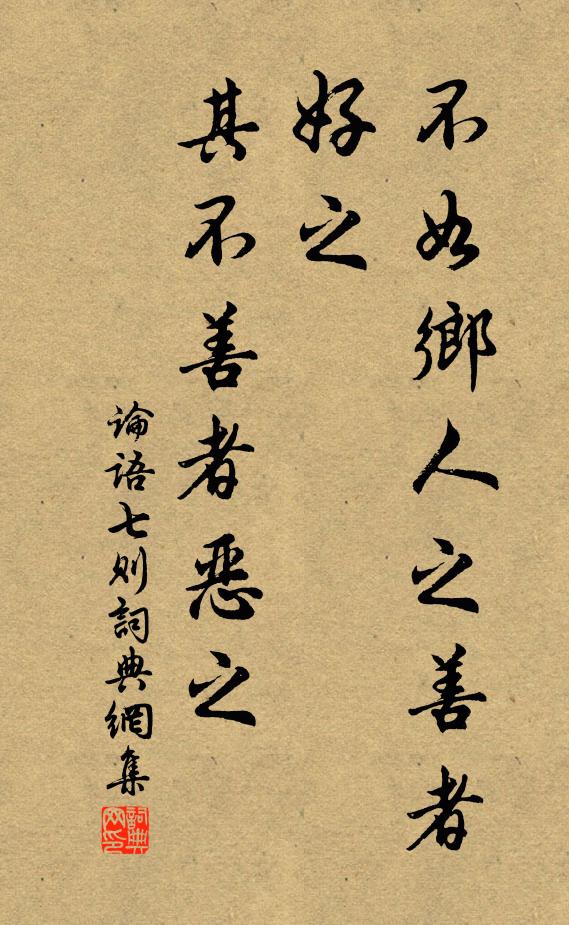 不如鄉人之善者
好之
其不善者惡之
論語七則詞典網集
詞典
网印